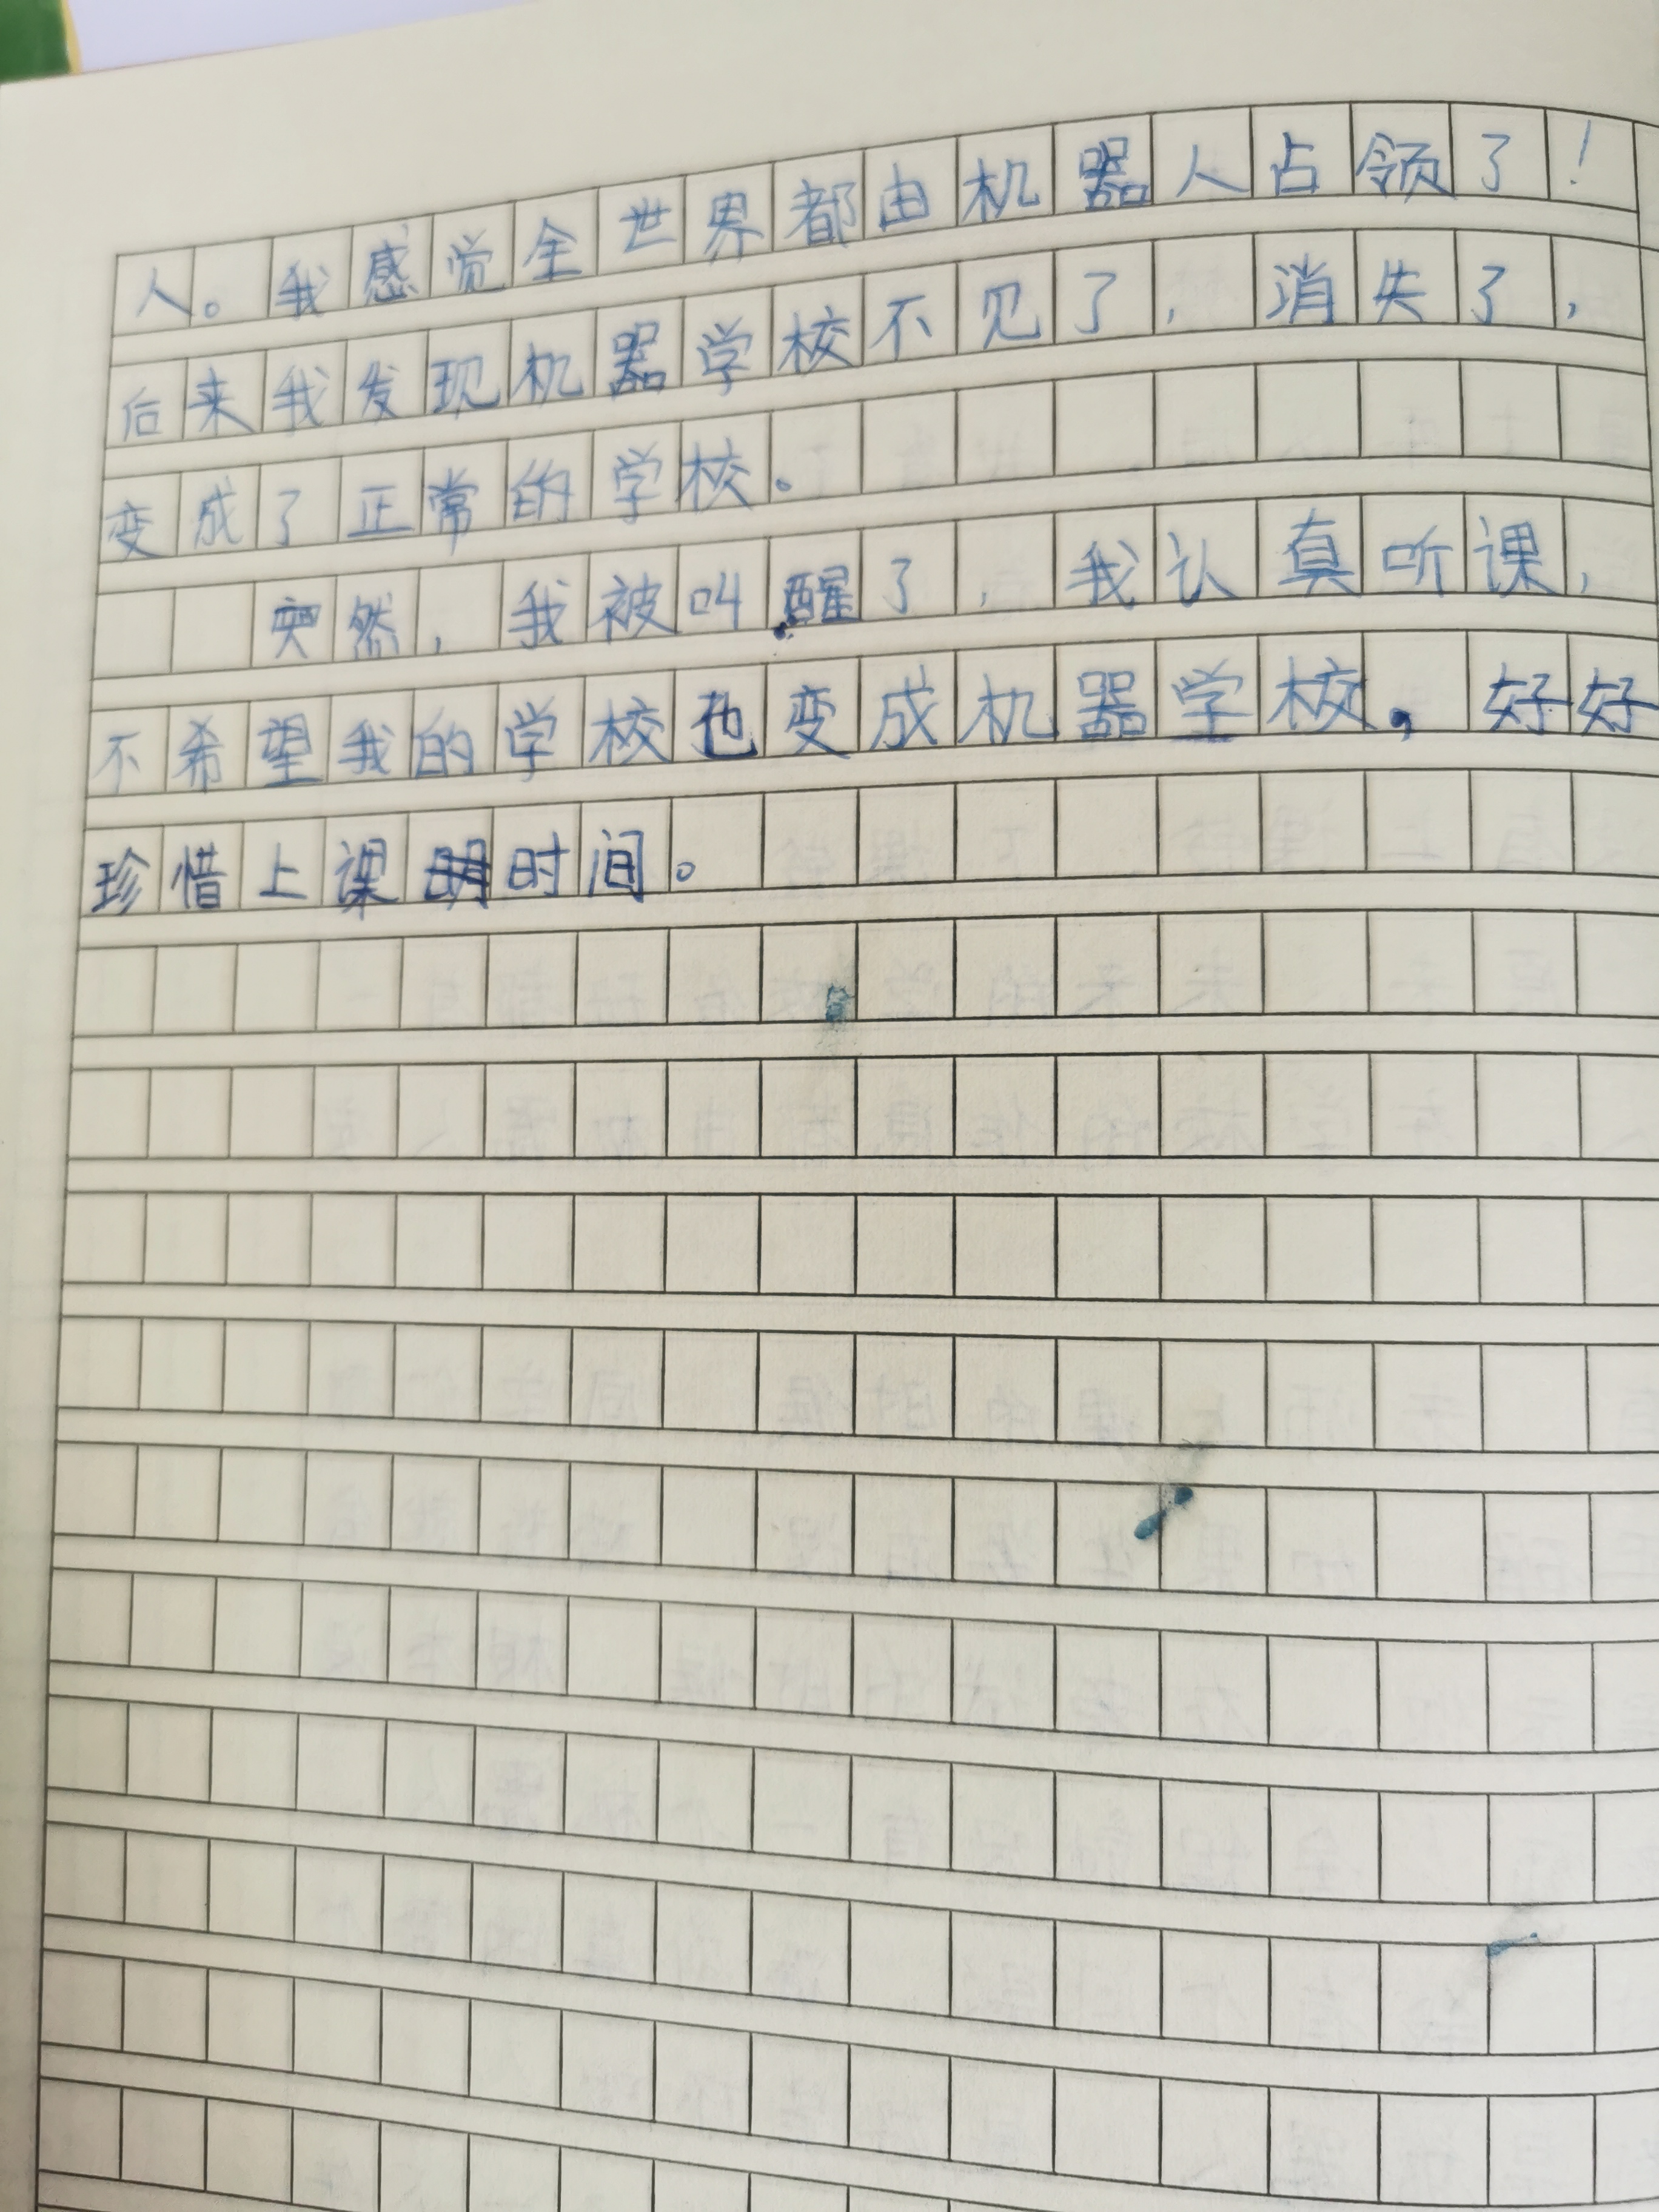 人。我感觉全世界都由机器人占领了！
后来我发现机器学校不见了，消失了，
变成了正常的学校。
突然，我被叫醒了，我认真听课，
不希望我的学校也变成机器学校，好好
珍惜上课时间。